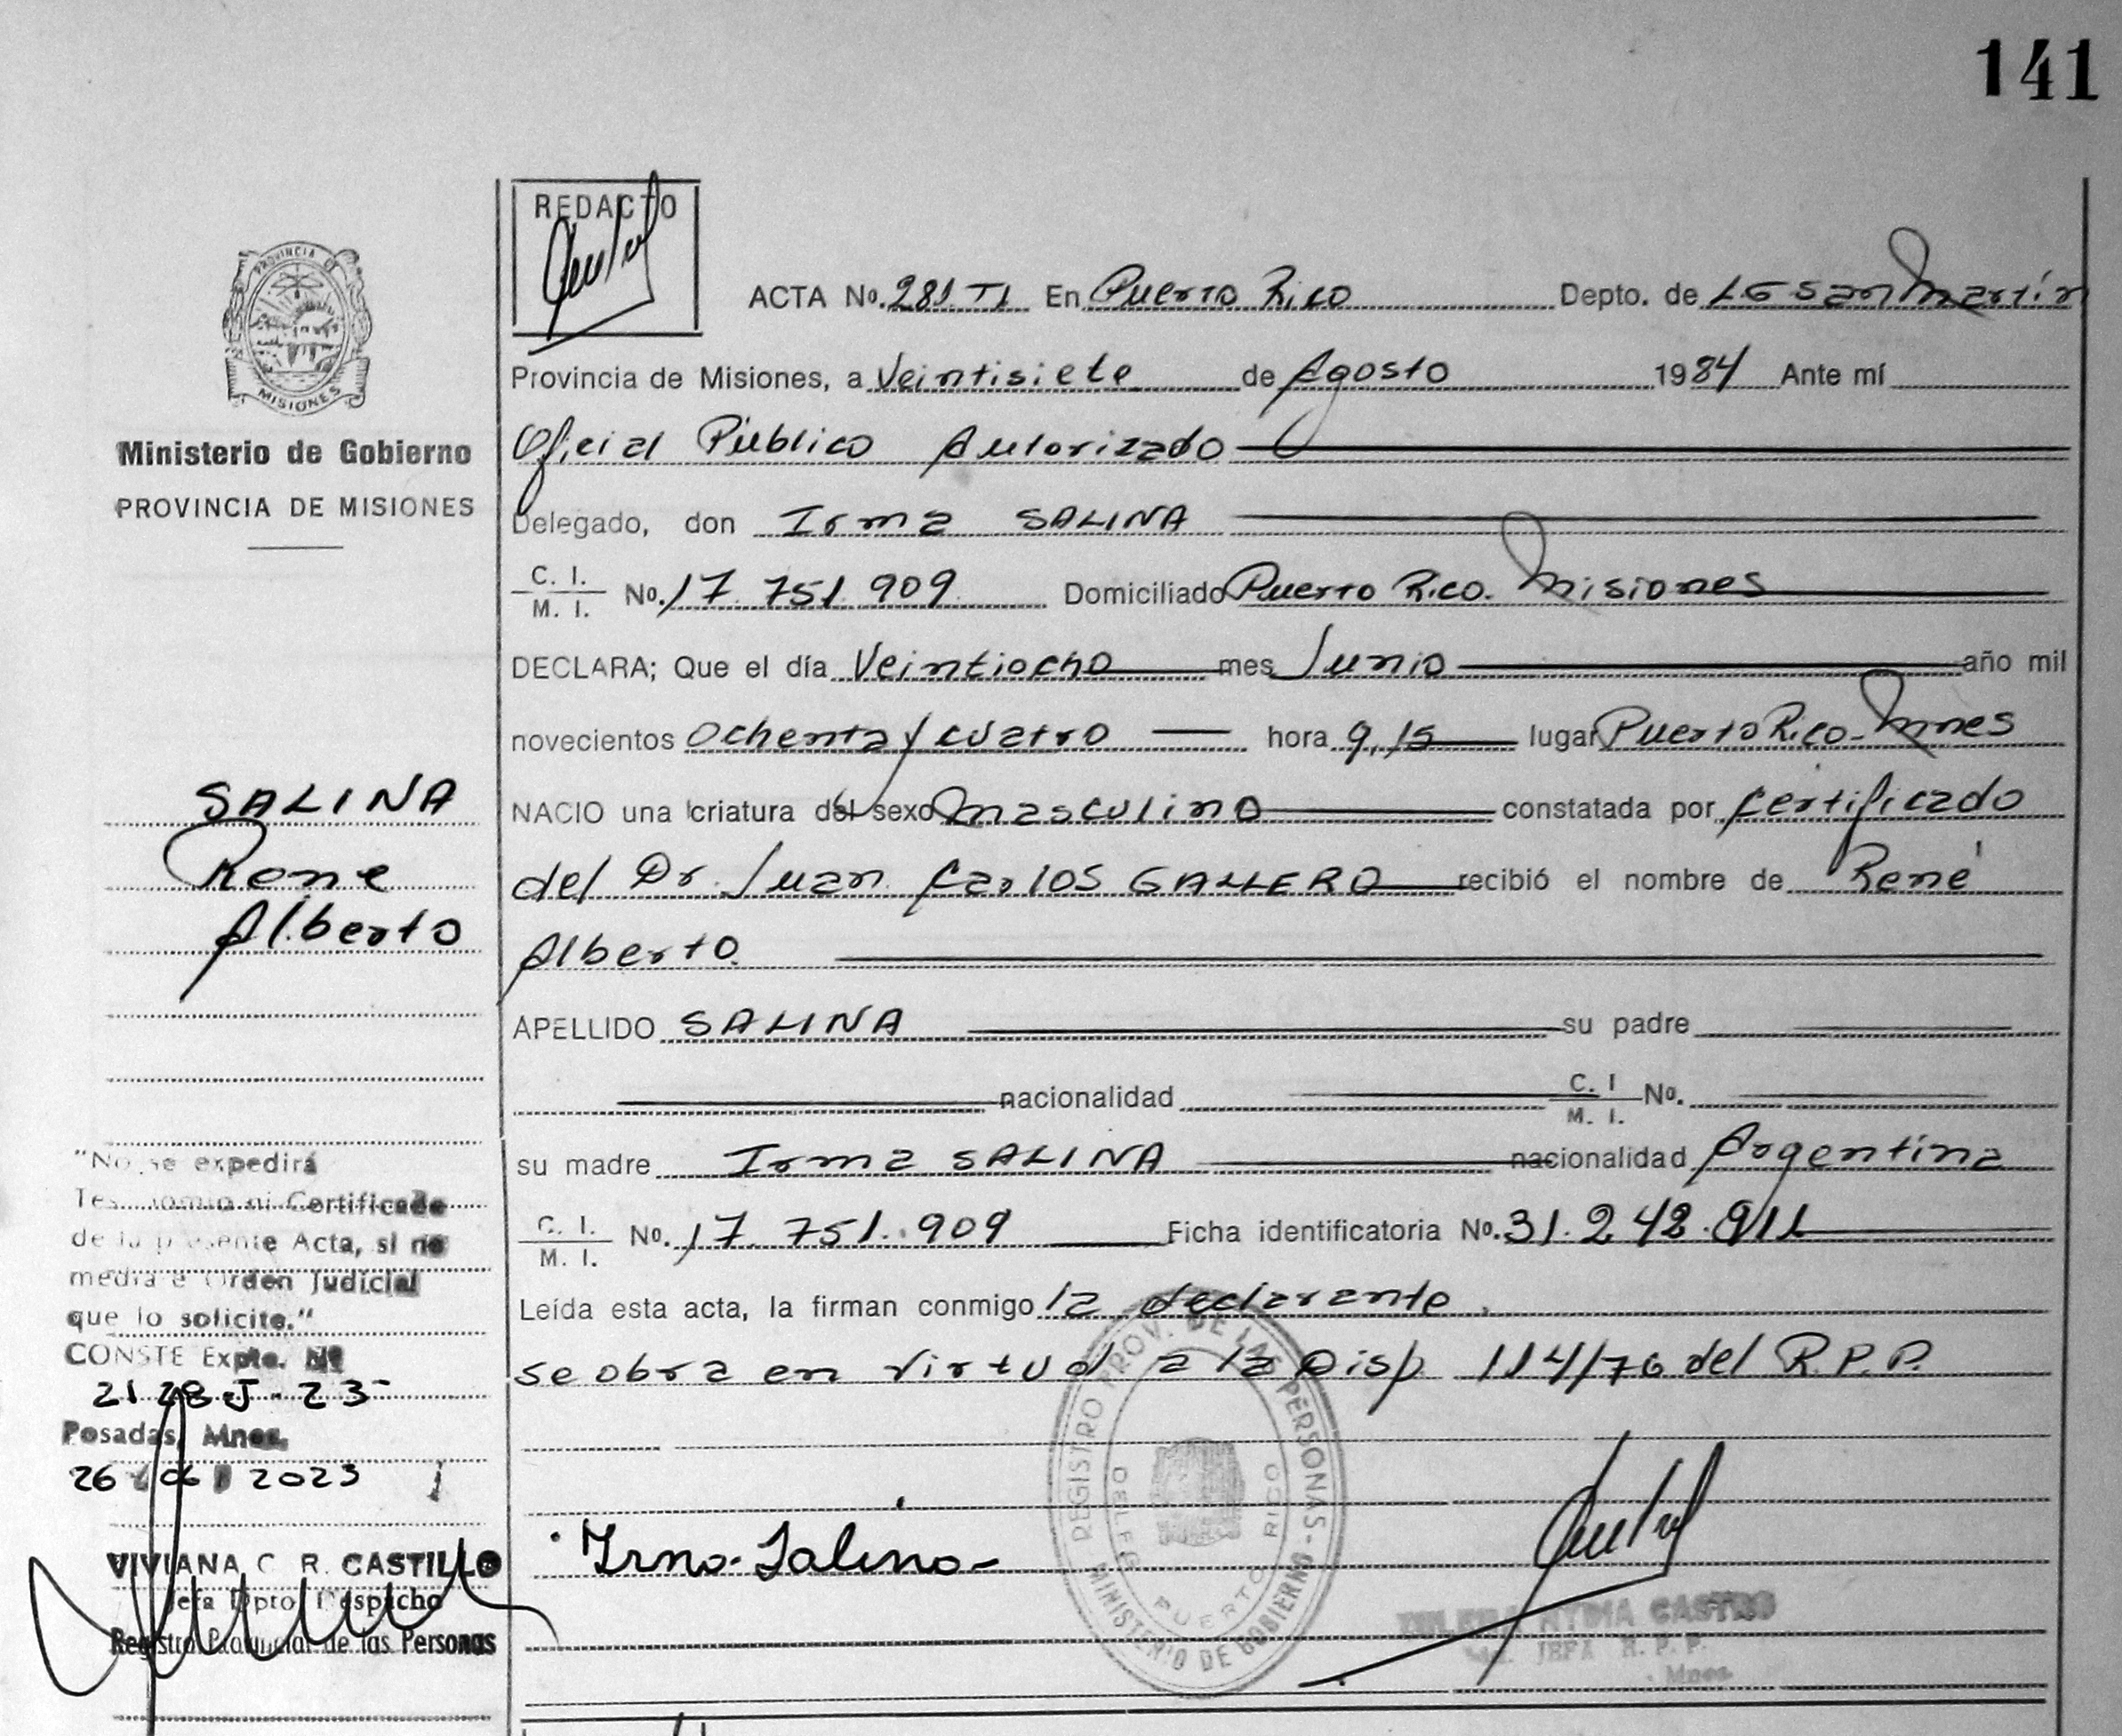 141
REDACTO
PROVINCIA DE
MISIONES
Ministerio de Gobierno
PROVINCIA DE MISIONES
ACTA No. 281 TI En Puerto Rico Depto. de LG San Martín
Provincia de Misiones, a Veintisiete de Agosto 1984 Ante mí
Oficial Público Autorizado
Delegado, don Irma SALINA
C. I. / M. I. No. 17 751 909 Domiciliado Puerto Rico. Misiones
DECLARA; Que el día Veintiocho mes Junio año mil
novecientos Ochenta y cuatro hora 9,15 lugar Puerto Rico - Mnes
NACIO una criatura del sexo masculino constatada por Certificado
del Dr. Juan Carlos GALLERO recibió el nombre de René
Alberto
APELLIDO SALINA su padre
nacionalidad C. I / M. I. No.
su madre Irma SALINA nacionalidad Argentina
C. I. / M. I. No. 17 751.909 Ficha identificatoria No. 31.242.911
Leída esta acta, la firman conmigo la declarante.
se obra en virtud a la Disp 114/76 del R.P.P.
Irma Salina
REGISTRO PROV. DE LAS PERSONAS - MINISTERIO DE GOBIERNO
PUERTO RICO
NYDIA CASTRO
JEFA R. P. P.
Mnes
SALINA
Rene
Alberto
"No se expedirá
Testimonio ni Certificado
de la presente Acta, si no
media e Orden Judicial
que lo solicite."
CONSTE Expte. Nº
2128-J-23
Posadas, Mnes.
26 06 2023
VIVIANA C. R. CASTILLO
Jefa Dpto. Despacho
Registro Provincial de las Personas